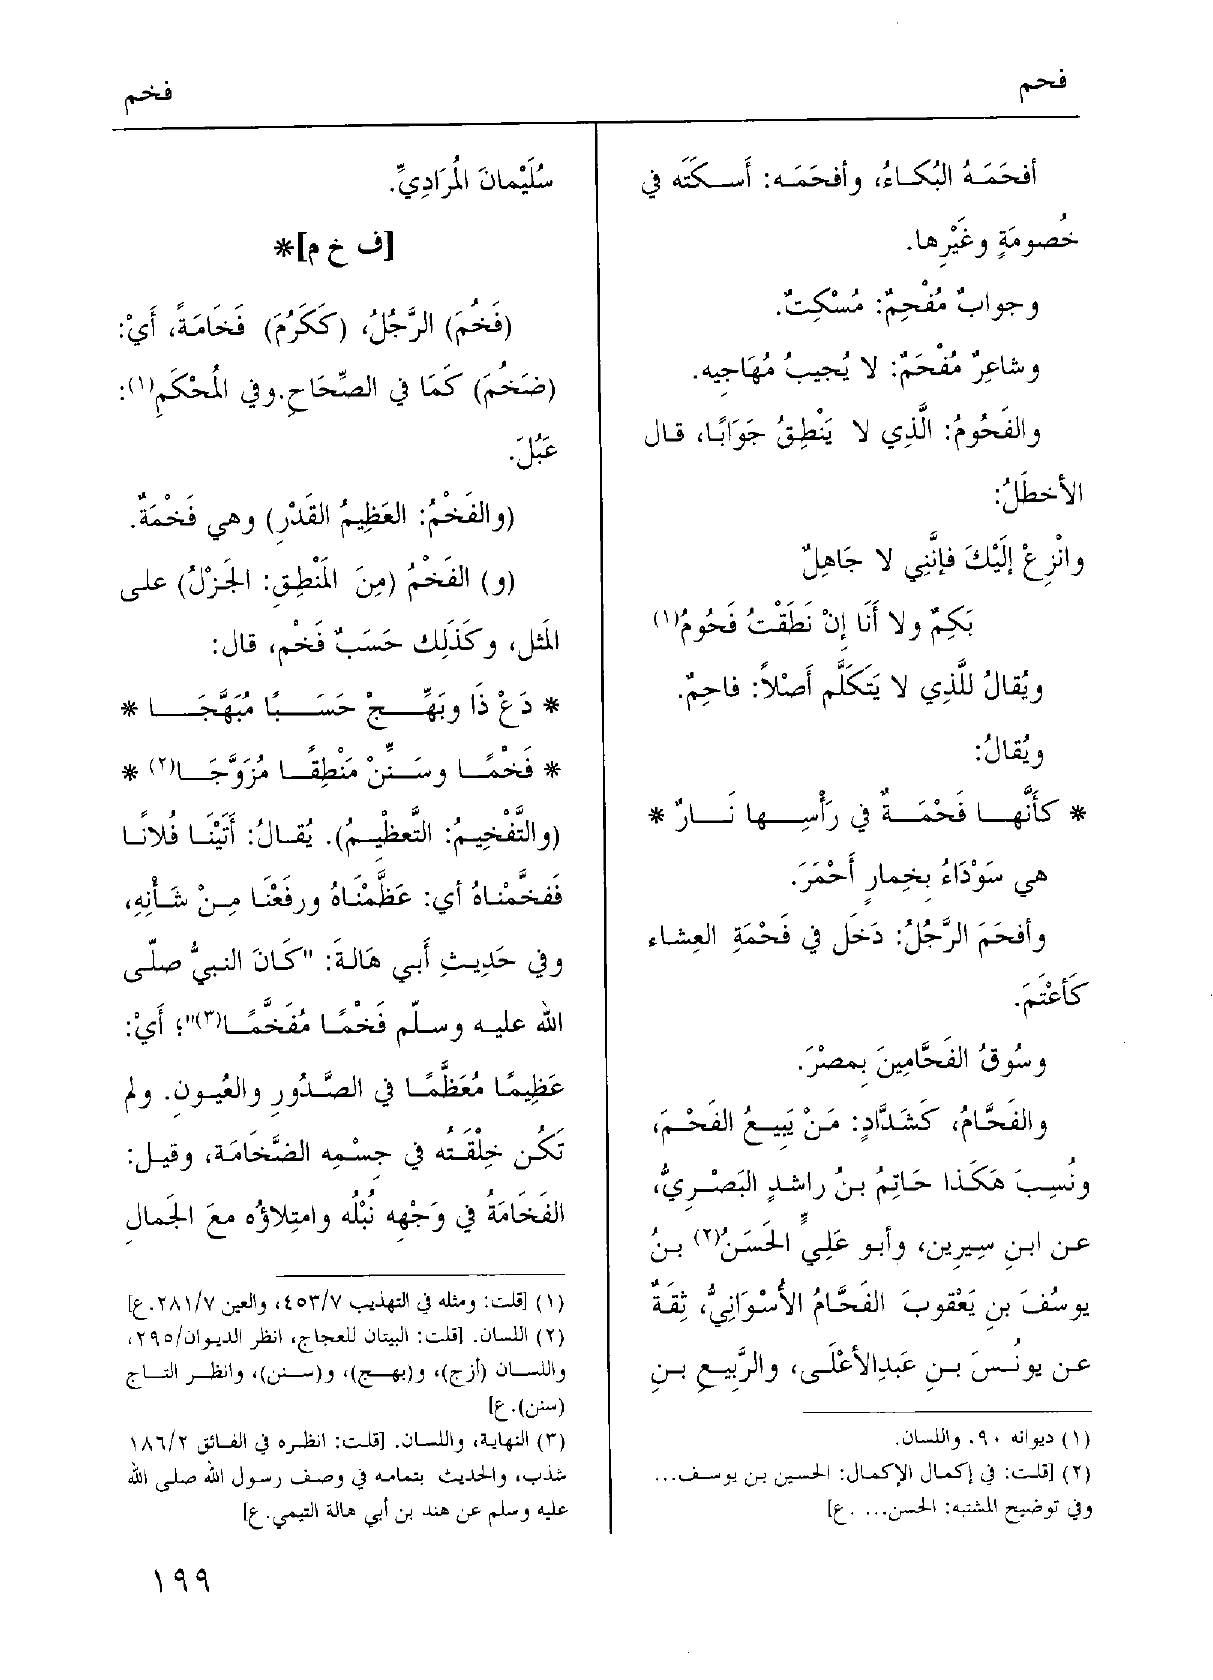 فحم
فخم
أفحَمَهُ البُكاءُ، وأفحَمَه: أَسكَتَه في
خُصومَةٍ وغَيْرِها.
وجوابٌ مُفْحِمٌ: مُسْكِتٌ.
وشاعِرٌ مُفْحَمٌ: لا يُجيبُ مُهَاجِيه.
والفَحُومُ: الَّذي لا يَنْطِقُ جَوَابًا، قال
الأخطَلُ:
وانْزِعْ إلَيْكَ فإنَّنِي لا جَاهِلٌ
بَكِمٌ ولا أَنَا إنْ نَطَقْتُ فَحُومُ(١)
ويُقالُ للَّذي لا يَتَكَلَّم أصْلاً: فاحِمٌ.
ويُقالُ:
* كأنَّها فَحْمَةٌ في رَأْسِها نَارٌ *
هي سَوْدَاءُ بخِمارٍ أَحْمَرَ.
وأفحَمَ الرَّجُلُ: دَخَل في فَحْمَةِ العِشاء
كَأَعْتَمَ.
وسُوقُ الفَحَّامِينَ بمِصْرَ.
والفَحَّامُ، كَشَدَّادٍ: مَنْ يَبِيعُ الفَحْمَ،
ونُسِبَ هَكَذا حَاتِمُ بنُ راشدٍ البَصْرِيُّ،
عن ابنِ سِيرِين، وأبو عَلِيٍّ الحَسَنُ(٢) بنُ
يوسُفَ بنِ يَعْقوبَ الفَحَّامُ الأُسْوَانِيُّ، ثِقَةٌ
عن يونُسَ بنِ عَبدِالأعْلَى، والرَّبيعِ بنِ
(١) ديوانه ٩٠. واللسان.
(٢) [قلت: في إكمال الإكمال: الحسين بن يوسف...
وفي توضيح المشتبه: الحسن... .ع]
سُلَيْمانَ المُرَادِيِّ.
[ف خ م]*
(فَخُمَ) الرَّجُلُ، (كَكَرُمَ) فَخَامَةً، أَيْ:
(ضَخُمَ) كَمَا في الصِّحَاحِ.وفي المُحْكَمِ(١):
عَبُلَ.
(والفَخْمُ: العَظِيمُ القَدْرِ) وهي فَخْمَةٌ.
(و) الفَخْمُ (مِنَ المَنْطِقِ: الجَزْلُ) على
المَثل، وكَذَلِك حَسَبٌ فَخْم، قال:
* دَعْ ذَا وبَهِّجْ حَسَبًا مُبَهَّجَا *
* فَخْمًا وسَنِّنْ مَنْطِقًا مُزَوَّجَا(٢) *
(والتَّفْخِيمُ: التَّعظِيمُ). يُقالُ: أَتَيْنَا فُلانًا
فَفخَّمْناهُ أي: عَظَّمْنَاهُ ورفَعْنَا مِنْ شأنِهِ،
وفي حَدِيثِ أَبي هَالةَ: "كَانَ النبيُّ صلّى
الله عليه وسلّم فَخْمًا مُفَخَّمًا(٣)"؛ أَيْ:
عَظِيمًا مُعَظَّمًا في الصُّدُورِ والعُيونِ. ولم
تَكُن خِلْقَتُه في جِسْمِه الضَّخَامَة، وقيل:
الفَخَامَةُ في وَجْهِه نُبْلُه وامتِلاؤه معَ الجَمالِ
(١) [قلت: ومثله في التهذيب ٤٥٣/٧، والعين ٢٨١/٧.ع]
(٢) اللسان. [قلت: البيتان للعجاج، انظر الديوان/٢٩٥،
واللسان (أزج)، و(بهج)، و(سنن)، وانظر التاج
(سنن).ع]
(٣) النهاية، واللسان. [قلت: انظره في الفائق ١٨٦/٢
شذب، والحديث بتمامه في وصف رسول الله صلى الله
عليه وسلم عن هند بن أبي هالة التيمي.ع]
١٩٩